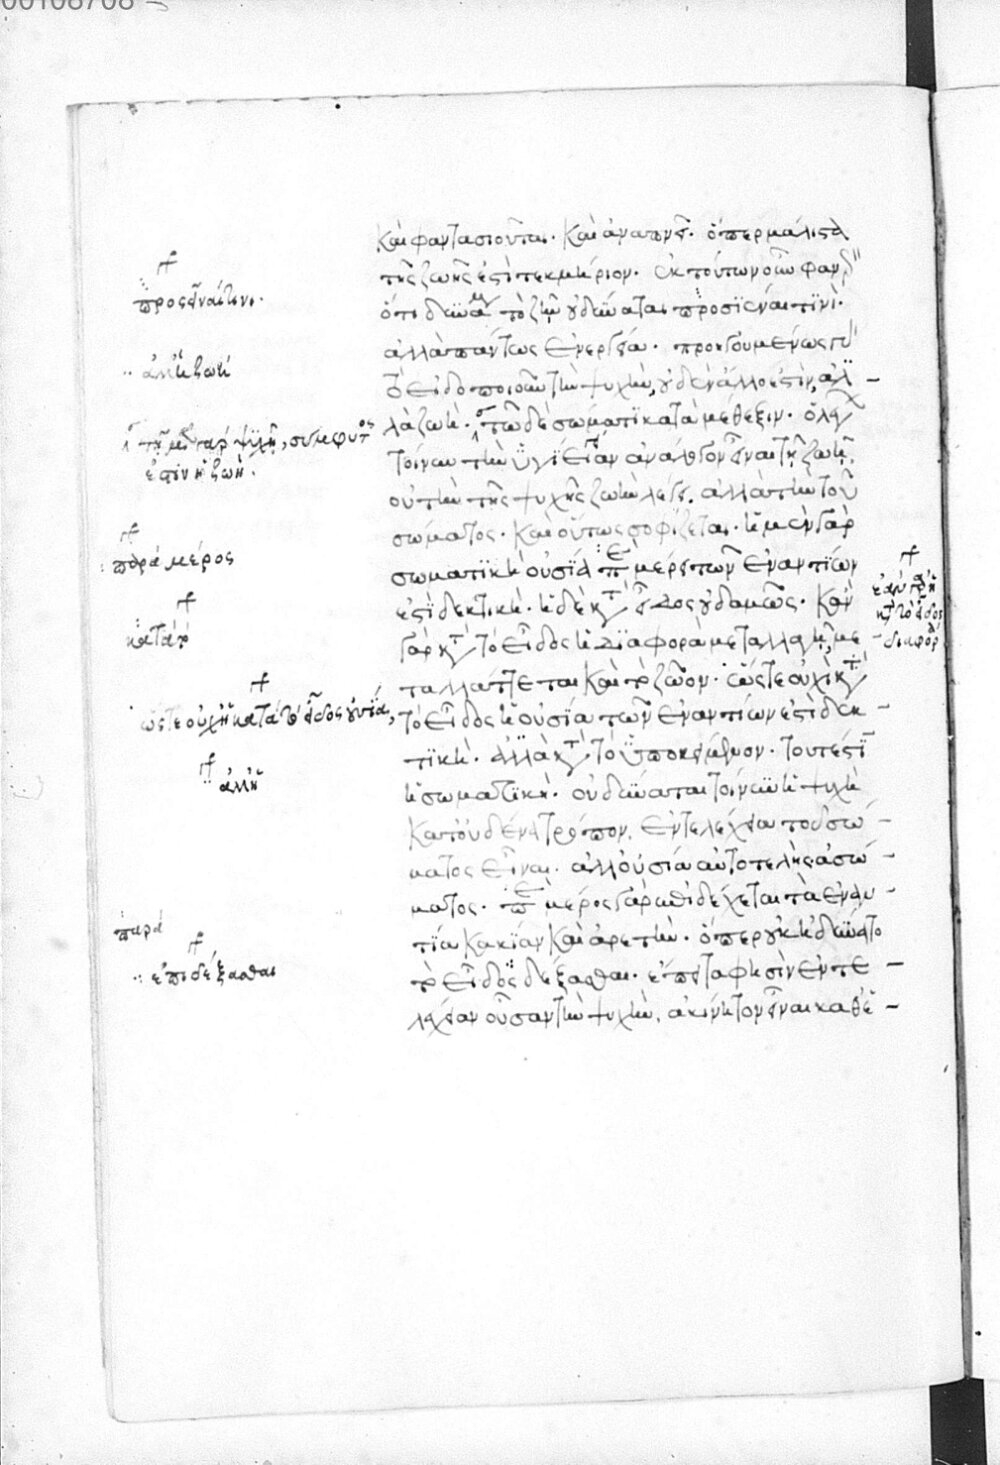 00108708
καὶ φαντασιοῦται. καὶ ἀναπνεῖ. ὅπερ μάλιστα
τῆς ζωῆς ἐστὶ τεκμήριον. ἐκ τούτων οὖν φανερὸν
ὅτι δύναμις τὸ ζῆν οὐ δύναται προσεῖναι τινί.
ἀλλὰ πάντως ἐνεργεία. προηγουμένως
τὸ εἰδοποιοῦν τὴν ψυχὴν, οὐδὲν ἄλλο ἐστὶν, ἀλ
λὰ ζωή. τῶ δὲ σώματι κατὰ μέθεξιν. ὁ λέγων
τοίνυν τὴν ὑγίειαν ἀνάλογον εἶναι τῇ ζωῇ,
οὐ τὴν τῆς ψυχῆς ζωὴν λέγει. ἀλλὰ τὴν τοῦ
σώματος. καὶ οὕτως σοφίζεται. ἡ μὲν γὰρ
σωματικὴ οὐσία μέρος τῶν ἐναντίων
ἐστὶ δεκτική. ἡ δὲ κατὰ εἶδος οὐδαμῶς. κἂν
γὰρ κατὰ τὸ εἶδος ἡ διαφορὰ μεταλλαγῇ, με
ταλλάττεται καὶ τὸ ζῶον. ὥστε οὐχὶ κατὰ
τὸ εἶδος ἡ οὐσία τῶν ἐναντίων ἐστὶ δεκ
τική. ἀλλὰ κατὰ τὸ ὑποκείμενον. τουτέστι
ἡ σωματική. οὐ δύναται τοίνυν ἡ ψυχὴ
κατ' οὐδένα τρόπον, ἐντελέχεια τοῦ σώ
ματος εἶναι. ἀλλ' οὐσία αὐτοτελὴς ἀσώ
ματος. μέρος γὰρ ἐπιδέχεται τὰ ἐναν
τία κακίαν καὶ ἀρετήν. ὅπερ οὐκ ἠδύνατο
τὸ εἶδος δέξασθαι. ἔπειτα φησὶν ἐντε
λέχειαν οὖσαν τὴν ψυχὴν, ἀκίνητον εἶναι καθ' ἑ
προσεῖναί τινι.
ἀλλ' ἡ ζωή
τῇ μὲν γὰρ ψυχῇ, σύμφυτος
ἐστὶν ἡ ζωή.
παρὰ μέρος
κατὰ τὸ
ὥστε οὐχ ἡ κατὰ τὸ εἶδος οὐσία,
ἀλλ' ἡ
παρὰ
ἐπιδέξασθαι
ἐὰν
κατὰ τὸ εἶδος
διαφορὰ